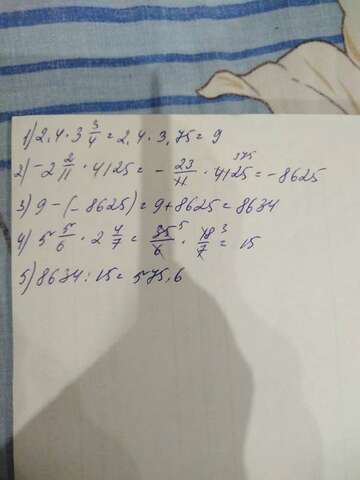 1) 2,4 · 3 3/4 = 2,4 · 3,75 = 9
2) -2 2/11 · 4125 = - 23/11 · 4125 375 = -8625
3) 9 - (- 8625) = 9 + 8625 = 8634
4) 5 5/6 · 2 4/7 = 35/6 5 · 18/7 3 = 15
5) 8634 : 15 = 575,6